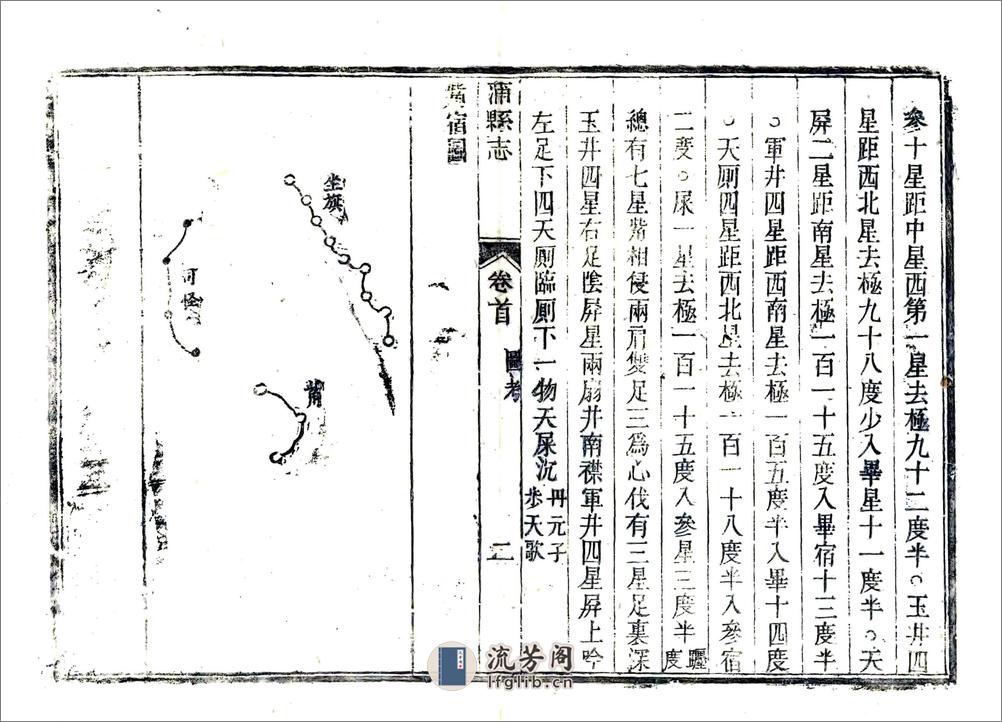 參十星距中星西第一星去極九十二度半○玉井四
星距西北星去極九十八度少入畢星十一度半○天
屏二星距南星去極一百一十五度入畢宿十三度半
○軍井四星距西南星去極一百五度半入畢十四度
○天厠四星距西北星去極一百一十八度半入參宿
二度○屎一星去極一百一十五度入參星三度半 躔度
總有七星觜相侵兩肩雙足三爲心伐有三星足裏深
玉井四星右足陰屏星兩扇井南襟軍井四星屏上吟
左足下四天厠臨厠下一物天屎沉 丹元子步天歌
蒲縣志
卷首
圖考
二
觜宿圖
坐旗
司怪
觜
流芳阁
lfglib.cn